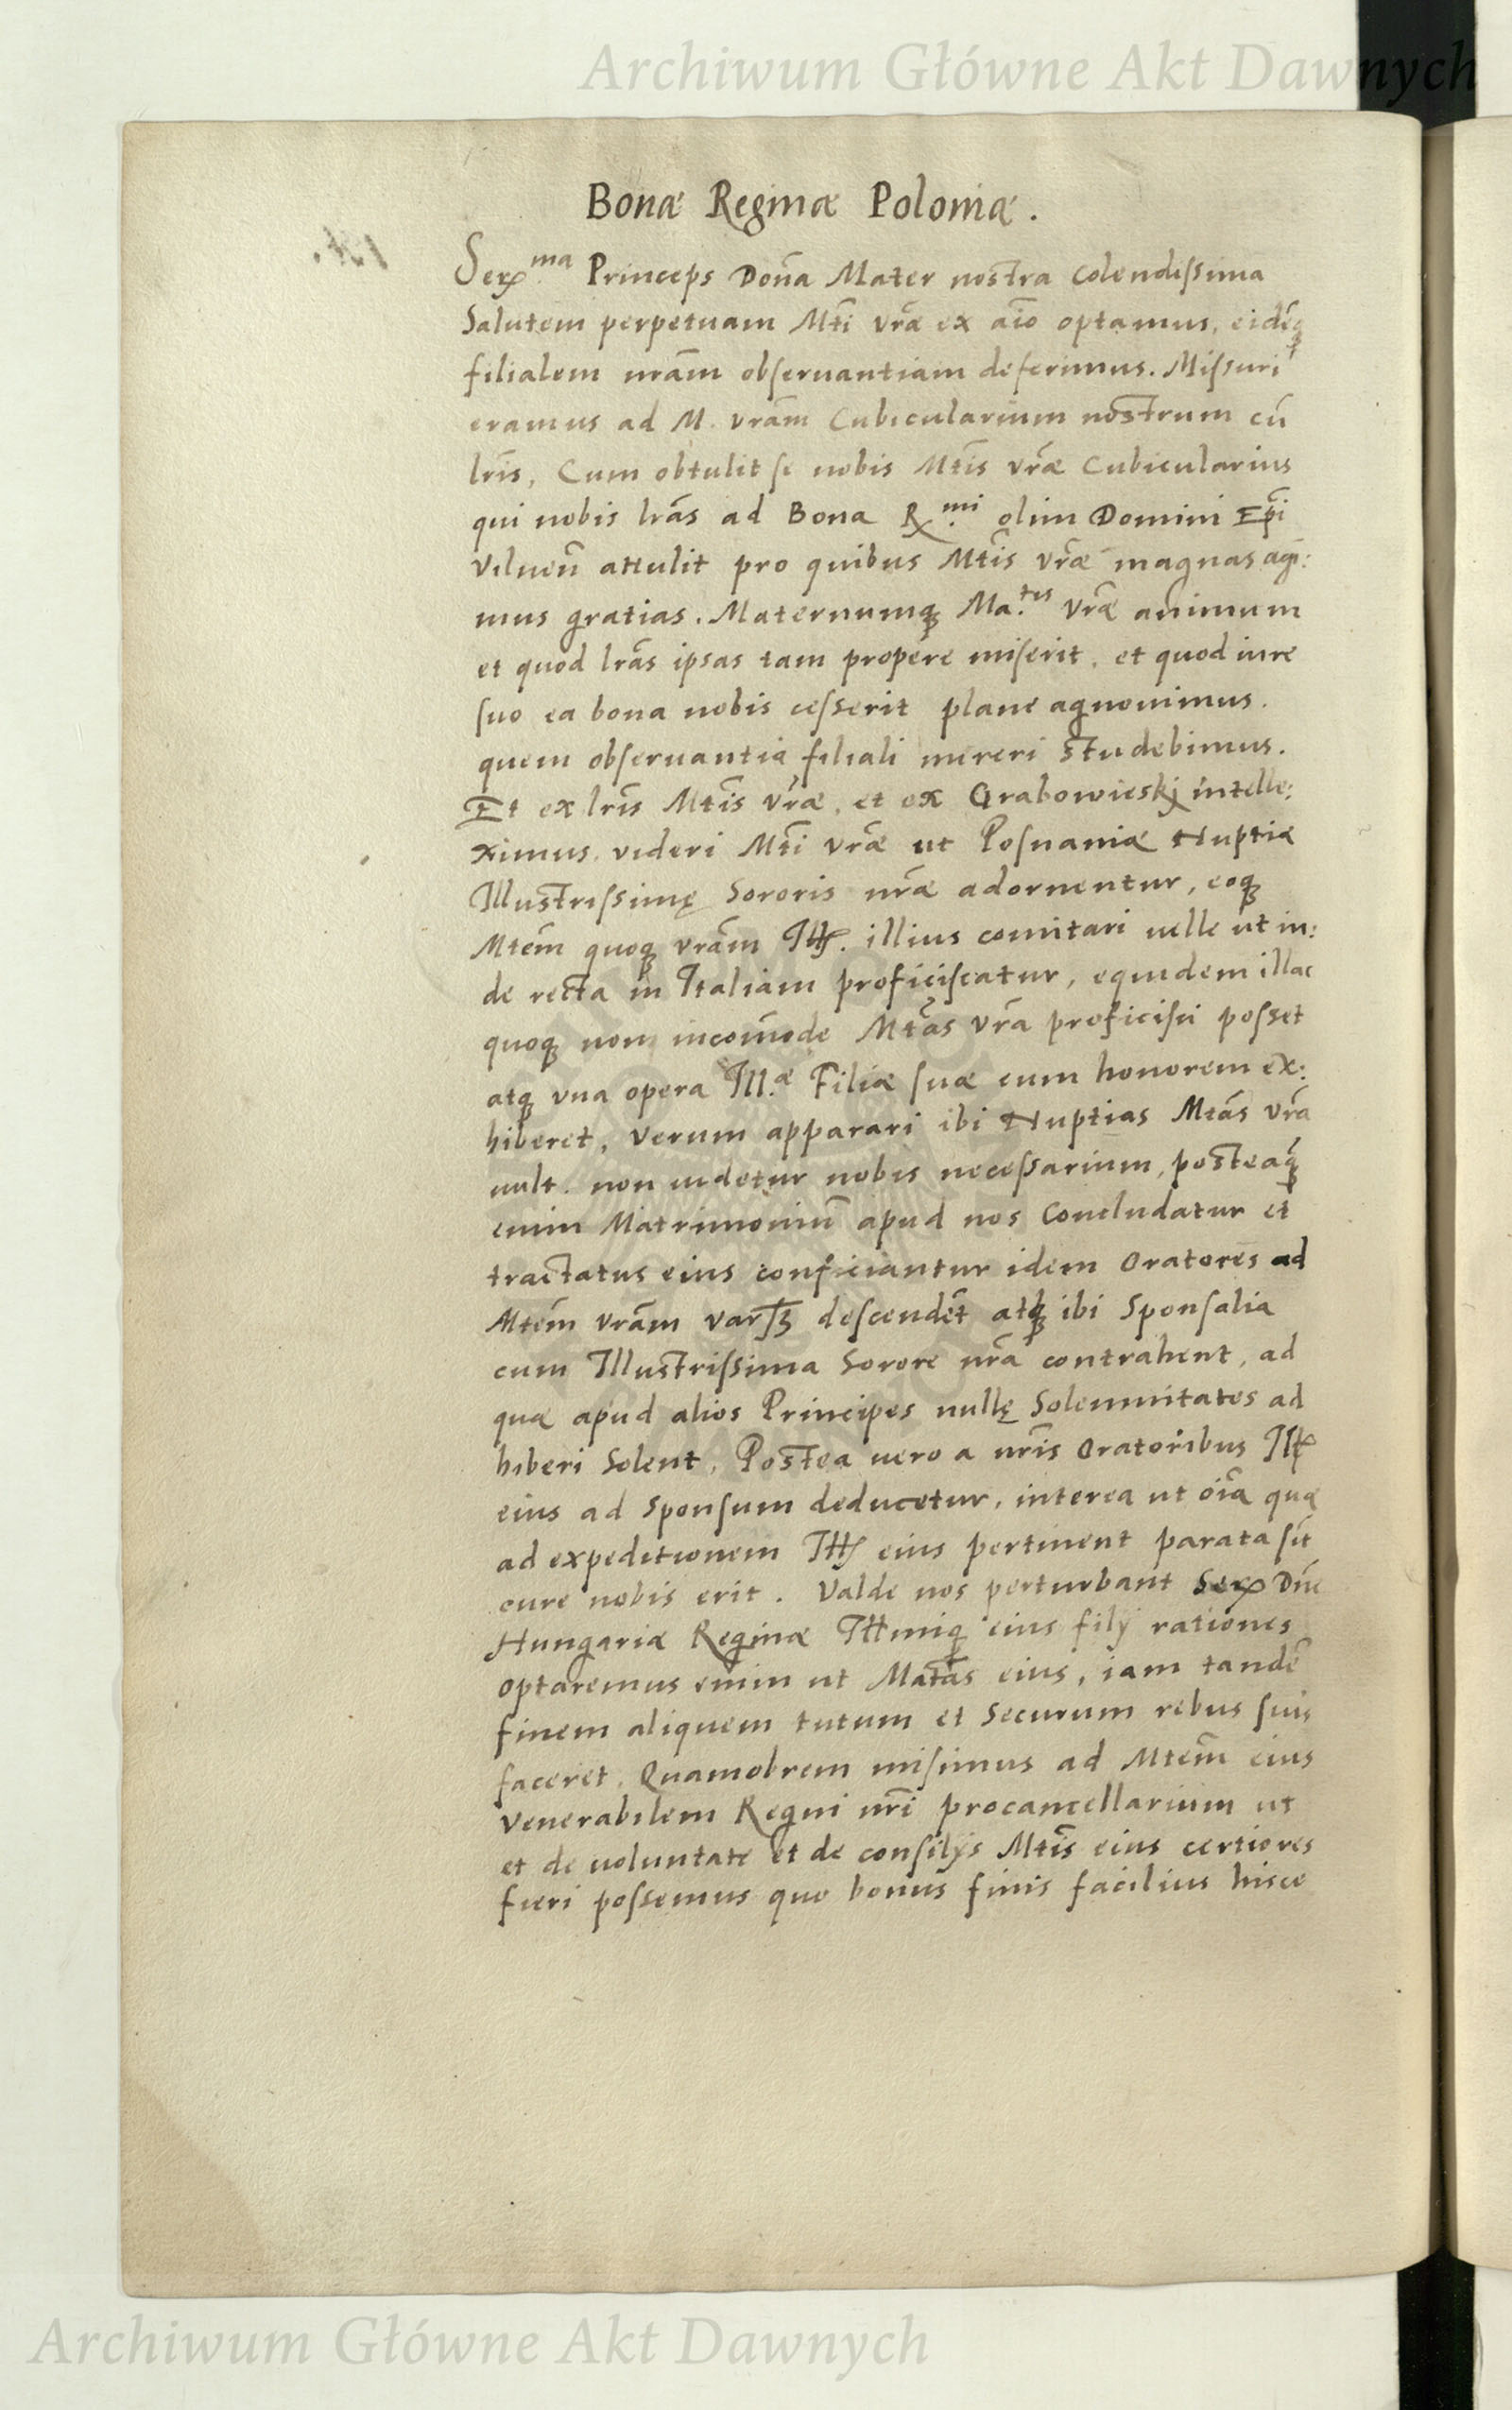 Archiwum Główne Akt Dawnych
Bonæ Reginæ Poloniæ.
Ser.ma Princeps Dona Mater nostra colendissima
Salutem perpetuam Mti vrae ex aio optamus, eidēq
filialem nram obseruantiam deferimus. Missuri
eramus ad M. vram Cubicularium nostrum cū
lris, Cum obtulit se nobis Mtis vræ Cubicularius
qui nobis lras ad Bona R.mi olim Domini Epi
Vilnen attulit pro quibus Mtis vræ magnas agi:
mus gratias. Maternumq Ma.tis vræ animum
et quod lras ipsas tam propere miserit, et quod iure
suo ea bona nobis cesserit plane agnouimus.
quem obseruantia filiali mereri studebimus.
Et ex lris Mtis vræ, et ex Grabowieskj intelle:
ximus videri Mti vræ ut Posnaniæ Nuptiæ
Illustrissimę Sororis nræ adornentur, eoq
Mtem quoq vram Ill. illius comitari uelle ut in:
de recta in Italiam proficiscatur, equidem illac
quoq non incomode Mtas vra proficisci posset
atq vna opera Ill.æ Filiæ suæ eum honorem ex:
hiberet, verum apparari ibi Nuptias Mtas vra
uult. non uidetur nobis necessarium, posteaq
enim Matrimoniū apud nos Concludatur et
tractatus eius conficiantur idem Oratores ad
Mtem vram Vars descendet atq ibi Sponsalia
cum Illustrissima Sorore nra contrahent, ad
quæ apud alios Principes nullę Solemnitates ad
hiberi Solent, Postea uero a nris Oratoribus Ill
eius ad Sponsum deducetur, interea ut oia quæ
ad expeditionem Ill eius pertinent parata sīt
cure nobis erit. Valde nos perturbant Ser Dne
Hungariæ Reginæ Illmiq eius filij rationes
optaremus enim ut Matas eius, iam tandē
finem aliquem tutum et Securum rebus suis
faceret. Quamobrem misimus ad Mtem eius
Venerabilem Regni nri procancellarium ut
et de uoluntate et de consilijs Mtis eius certiores
fieri possemus quo bonus finis facilius hisce
Archiwum Główne Akt Dawnych